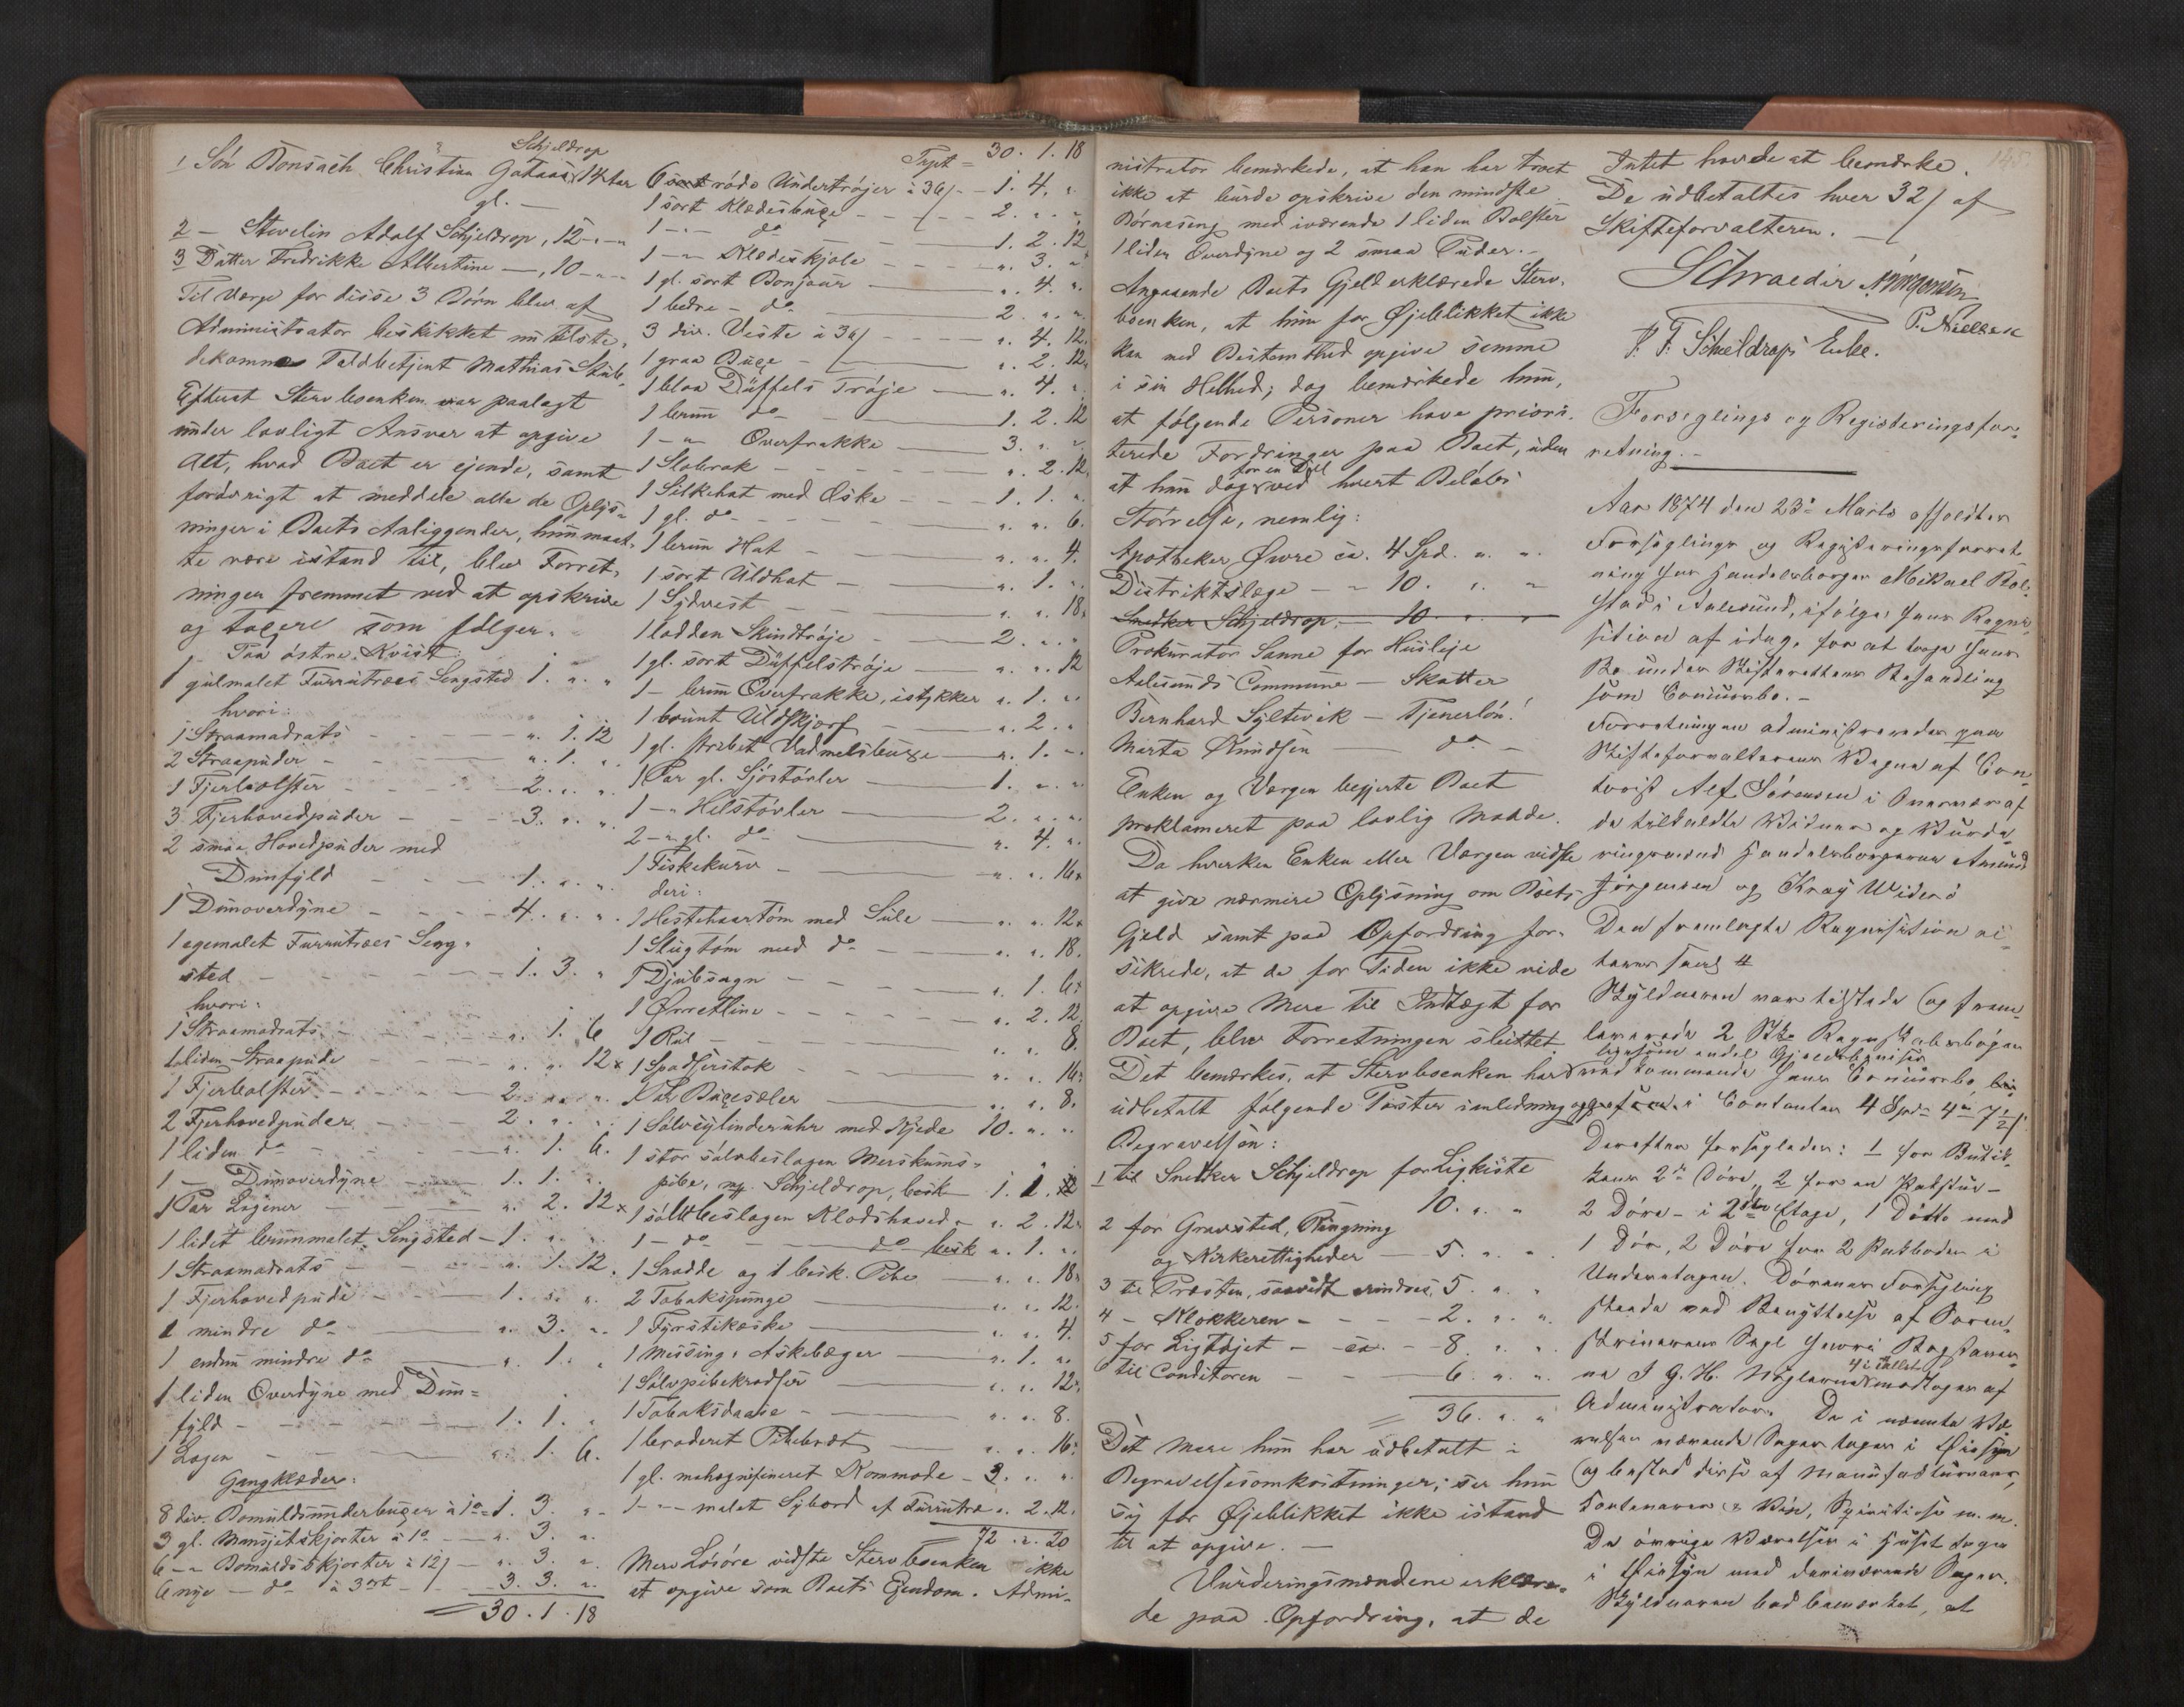 Schjeldrop
1 Sön Bonsach Christian 14 Aar
gl. —
2 — Stevelin Adolf Schjeldrop, 12 - „ - „
3 Datter Fredrikke Albertine —, 10 - „ -
Til Værge for disse 3 Börn blev af
Administrator beskikket nu tilste-
dekomne Toldbetjent Mathias
Efterat Stervboenken var paalagt
under lovligt Ansvar at opgive
Alt, hvad Boet er ejende, samt
forövrigt at meddele alle de Oplys-
ninger i Boets Anliggender, hun maat-
te være istand til, blev Forret-
ningen fremmet ved at opskrive
og taxere som følger.
Paa östre Kvist:
1 gulmalet Furrutræes Sengsted 1. „ „
hvori:
1 Straamadrats - - „. 1. 12
2 Straapuder - - „. 1. „
1 Fjerbolster - - 2. „ „
3 Fjerhovedpuder - - 3. „ „
2 smaa Hovedpuder med
Dunfyld - - 1. „ „
1 Dunoverdyne - - 4. „ „
1 egemalet Furrutræes Seng-
sted - - 1. 3. „
hvori:
1 Straamadrats - - „. 1. 6
1 liden Straapude - - „. „. 12
1 Fjerbolster - - 2. „ „
2 Fjerhovedpuder - - 2. „ „
1 liden do - - „. 1. 6.
1 — Dunoverdyne - - 1. 1. „
1 Par Lagener - - „. 2. 12
1 lidet brunmalet Sengsted - 1. „ „
1 Straamadrats - - „. 1. 12.
1 Fjerhovedpude - - 1. „ „
1 mindre do - - „. 3. „
1 endnu mindre do - - „. 1. „
1 liden Overdyne med Dun-
fyld - - 1. 1. „
1 Lagen - - „. 1. 6.
Gangklæder:
8 div. Bomuldsunderbuxer - 1. 3. „
3 gl. Mansjetskjorter - „. 3. „
6 - „ Bomuldsskjorter à 12 - „. 3. „
6 nye — do à 3 ort - 3. 3. „
= 30. 1. 18
Tspt = 30. 1. 18
6 röde Undertröjer à 36 - 1. 4. „
1 sort Klædesbuxe - - 2. „ „
1 - „ do - - 1. 2. 12
1 - „ Klædeskjole - - „. 3. „
1 gl. sort Bonjour - „. 4. „
1 bedre - do - 2. „ „
3 div. Veste à 36 - - „. 4. 12.
1 graa Buxe - - „. 2. 12
1 blaa Düffels Tröje - „. 4. „
1 brun do - 1. 2. 12
1 - „ Overfrakke - 3. „ „
1 Slobrok - - „. 2. 12.
1 Silkehat med Æske - 1. 1. „
1 gl. do - - „. „. 6.
1 brun Hat - „. „. 4.
1 sort Uldhat - „. 1. „
1 Sydvest - - „. „. 18.
1 lodden Skindtröje - 2. „ „
1 gl. sort Düffelströje - „. „. 12
1 — brun Overfrakke, istykker „. 1. „
1 brunt Uldskjerf - „. 2. „
1 gl. stribet Vadmelsbuxe - „. 1. „
1 Par gl. Sjöstövler - 1. „ „
1 - „ Helstövler - 2. „ „
2 - „ gl. do - „. 4. „
1 Fiskekurv - „. „. 16
deri:
1 Hestehaartöm med Sule - „. „. 12
1 Slugtöm med do - „. „. 18.
1 Djubsagn - - „. 1. 6.
1 Örretline - - „. 2. 12.
1 - „. „. 8.
1 Spadserstok - „. „. 16.
1 Par Buxesæler - „. „. 8.
1 Sölvcylinderuhr med Kjede 10. „ „
1 stor sölvbeslagen Merskums-
pibe, Schjeldrop, besk. 1. 1.
1 sölvbeslagen Klodshoved - „. 2. 12
1 - do - do besk „. 1. „
1 Snadde og 1 besk. Pibe - „. „. 18.
2 Tobakspunge - „. „. 12.
1 Fyrstikæske - „. „. 4.
1 Messing- Askebæger - „. 1. „
1 Sölvpibekradser - „. „. 12.
1 Tobaksdaase - „. „. 8.
1 broderet Pibebræt - „. „. 16.
1 gl. mahognifineret Kommode - 3. „ „
1 - „ malet Sybord af Furrutræ „. 2. 12.
= 72. „. 20
Mere Lösöre vidste Stervboenken ikke
at opgive som Boets Ejendom. Admi-
nistrator bemærkede, at han har troet
ikke at burde opskrive den mindste
Börneseng med iværende 1 liden Bolster
1 liden Overdyne og 2 smaa Puder. -
Angaaende Boets Gjeld erklærede Sterv-
boenken, at hun for Øjeblikket ikke
kan med Bestemthed opgive samme
i sin Helhed; dog bemærkede hun,
at følgende Personer have priori-
terede Fordringer paa Boet, uden
for en Deel
at hun dog ved hvert Beløbs
Størrelse, nemlig:
Apotheker Øwre ca. 4 Spd. „ „
Distriktslæge - „ 10. „ „
Snedker Schjeldrop - 10. „ „
Prokurator Sanne for Husleje
Aalesunds Commune — Skatter
Bernhard Syltevik — Tjenerlön!
Marta Knudsen — do —
Enken og Værgen begjerte Boet
proklameret paa lovlig Maade.
Da hverken Enken eller Værgen vidste
at give nærmere Oplysning om Boets
Gjeld samt paa Opfordring for-
sikrede, at de for Tiden ikke vide
at opgive Mere til Indtægt for
Boet, blev Forretningen sluttet.
Det bemærkes, at Stervboenken har
udbetalt følgende Poster i anledning
Begravelsen:
1 til Snedker Schjeldrop for Ligkiste
10. „ „
2 for Gravsted, Ringning
og Kirkerettigheder - 5. „ „
3 til Præsten, saavidt erindres, 5. „ „
4 - Klokkeren - - - 2. „ „
5 for Ligtøjet - ca. - 8. „ „
6 til Conditoren - - 6. „ „
= 36. „ „
Det mere hun har udbetalt i
Begravelsesomkostninger; ser hun
sig for Øjeblikket ikke istand
til at opgive. —
Vurderingsmændene erklære-
de paa Opfordring, at de
145.
Intet havde at bemærke.
De udbetaltes hver 32 af
Skifteforvalteren. —
Schraeder A. Jörgensen
P. Nielsen
P. F. Scheldrops Enke.
Forseglings og Registeringsfor-
retning. —
Aar 1874 den 23de Marts afholdtes
Forseglings og Registeringsforret-
ning hos Handelsborger Mikael Rol-
stad i Aalesund, ifølge hans Requi-
sition af idag, for at tage hans
Bo under Skifterettens Behandling
som Concursbo. -
Forretningen administreredes paa
Skifteforvalterens Vegne af Con-
torist Alf Sörensen i Overvær af
de tilkaldte Vidner og Vurde-
ringsmænd Handelsborgerne Amund
Jörgensen og Kray Widerö
Den fremlagte Requisition
#
Skyldneren var tilstede og frem-
leverede 2 Stk Regnskabsbøger
ligesom endel Gjeldsbeviser
vedkommende hans Concursbo,
i Contanter 4 Spd 4 „ 7½
Derefter forsegledes: 1 for Butik-
kens 2de Döre, 2 for en Pakstue -
2 Döre - i 2den Etage, 1 Ditto med
1 Dör, 2 Döre for 2 Pakboder i
Underetagen. Dörenes Forsegling
skeede ved Benyttelse af Soren-
skriverens Segl hvori Bogstaver-
4 i Tallet
ne J. G. H. Nøglerne modtoges af
Administrator. De i nævnte Væ-
relser værende Sager toges i Øiesyn
og bestod disse af Manufacturvarer,
, Vin, Spirituosa m. m.
De øvrige Værelser i Huset toges
i Øiesyn med deriværende Sager.
Skyldneren bad bemærket, at